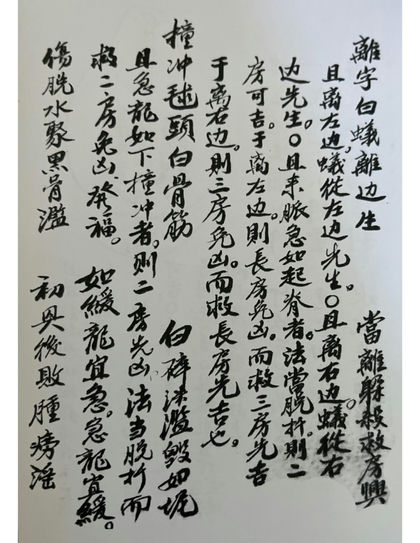 離字白蟻離边生 當離躲殺救房興
且离左边,蟻從左边先生。〇且离右边。蟻從右
边先生。〇且来脈急如起脊者。法當脱杀。則二
房可吉。于离左边。則長房先凶。而救三房先吉
于离右边。則三房先凶。而救長房先吉也。
撞冲毬頭白骨筋 白碎淡濫毀如坭
且急龍如下撞冲者。則二房先凶,法当脱杀而
救二房免凶發福。如緩龍宜急。急龍宜緩。
傷脱水聚黑骨濫 初興後敗腫㾮滛